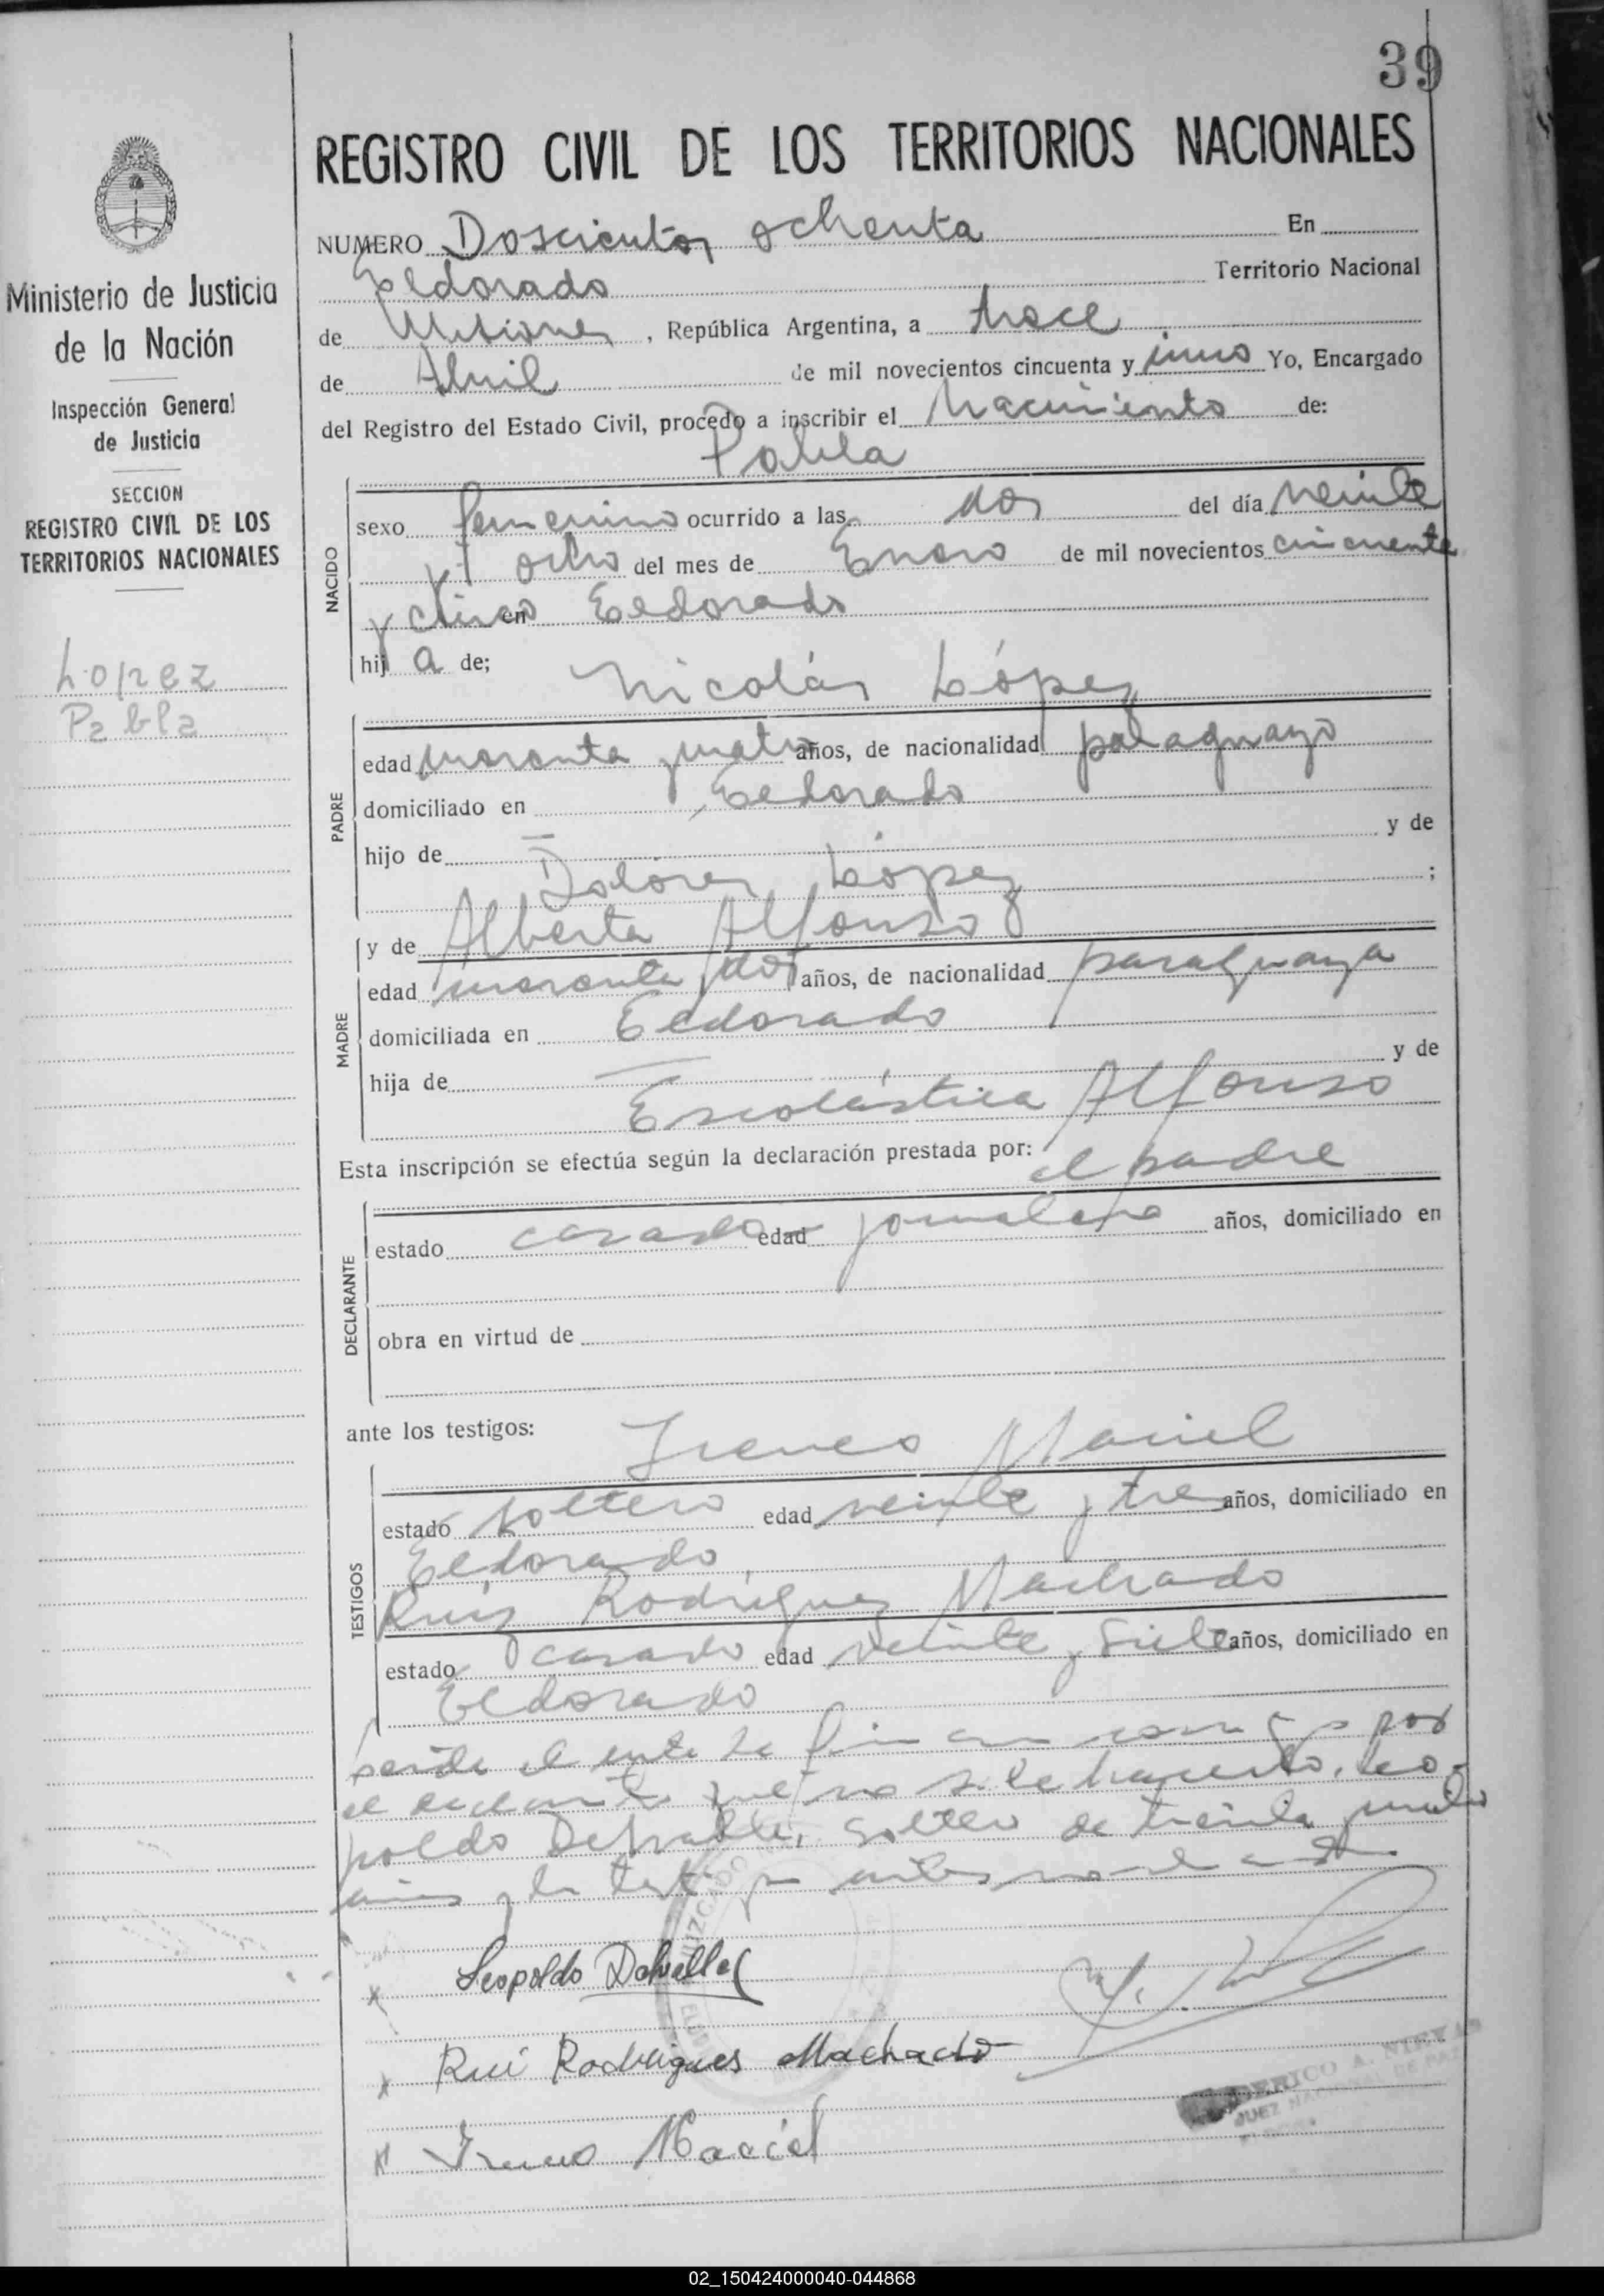 39
REGISTRO CIVIL DE LOS TERRITORIOS NACIONALES
Ministerio de Justicia
de la Nación
Inspección General
de Justicia
SECCION
REGISTRO CIVIL DE LOS
TERRITORIOS NACIONALES
Lopez
Pabla
NUMERO Doscientos ochenta En
Eldorado Territorio Nacional
de Misiones, República Argentina, a trece
de Abril de mil novecientos cincuenta y Yo, Encargado
del Registro del Estado Civil, procedo a inscribir el nacimiento de:
Pabla
NACIDO
sexo femenino ocurrido a las dos del día veinte
y ocho del mes de Enero de mil novecientos cincuenta
y cinco en Eldorado
hij a de; Nicolás López
PADRE
edad cuarenta y cuatro años, de nacionalidad paraguayo
domiciliado en Eldorado
hijo de — y de
Dolores López ;
MADRE
y de Alberta Alfonso
edad cuarenta y dos años, de nacionalidad paraguaya
domiciliada en Eldorado
hija de — y de
Escolástica Alfonso
Esta inscripción se efectúa según la declaración prestada por: el padre
DECLARANTE
estado casado edad jornalero años, domiciliado en
obra en virtud de
ante los testigos: Ireneo Maciel
TESTIGOS
estado soltero edad veinte y tres años, domiciliado en
Eldorado
Ruis Rodriguez Machado
estado casado edad veinte y siete años, domiciliado en
Eldorado
el acta la por
el que no sabe hacerlo, Leo-
poldo Delvalle, soltero de treinta y cuatro
años y los testigos
Leopoldo Delvalle
Rui Rodrigues Machado
Ireneo Maciel
JUZGADO
ERICO A.
JUEZ NACIONAL DE PAZ
02_150424000040-044868